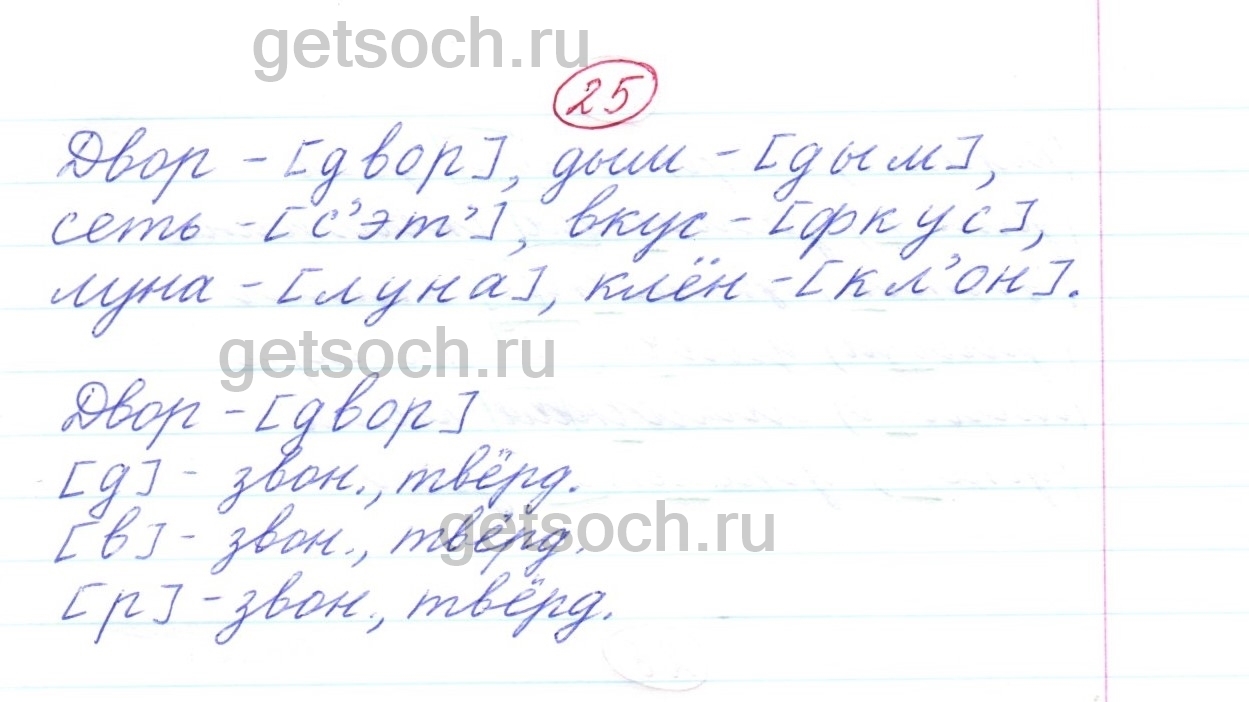 getsoch.ru
25
Двор - [двор], дым - [дым],
сеть - [с'эт'], вкус - [фкус],
луна - [луна], клён - [кл'он].
getsoch.ru
Двор - [двор]
[д] - звон., твёрд.
[в] - звон., твёрд.
getsoch.ru
[р] - звон., твёрд.